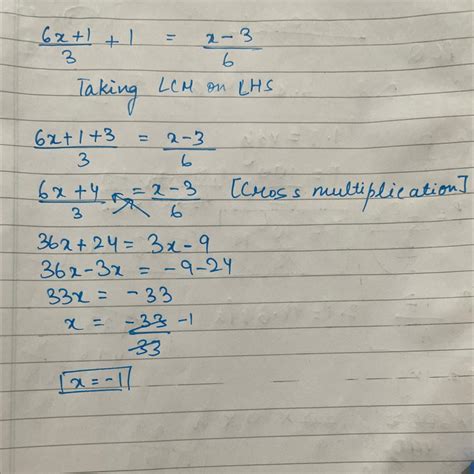 (6x+1)/3 + 1 = (x-3)/6
Taking LCM on LHS
(6x+1+3)/3 = (x-3)/6
(6x+4)/3 = (x-3)/6 [Cross multiplication]
36x+24 = 3x-9
36x-3x = -9-24
33x = -33
x = -33/33 -1
x = -1